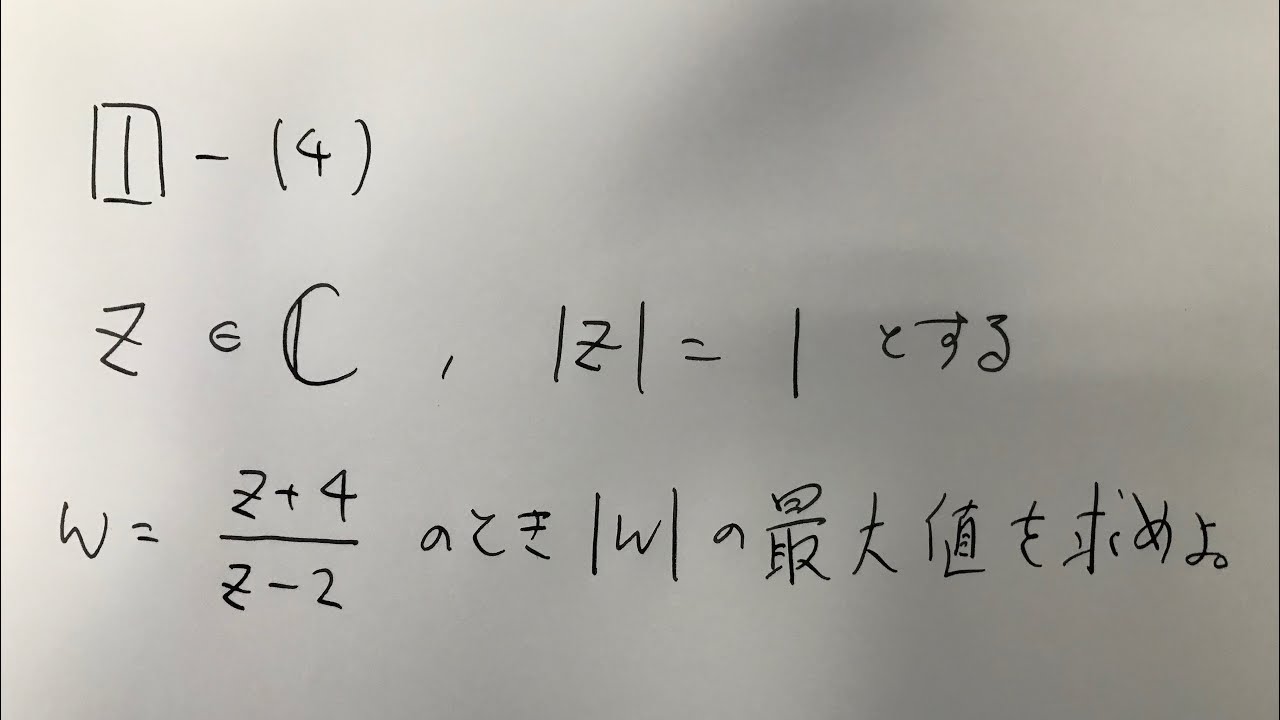 1 - (4)
z ∈ ℂ , |z| = 1 とする
w = \frac{z+4}{z-2} のとき |w| の最大値を求めよ。